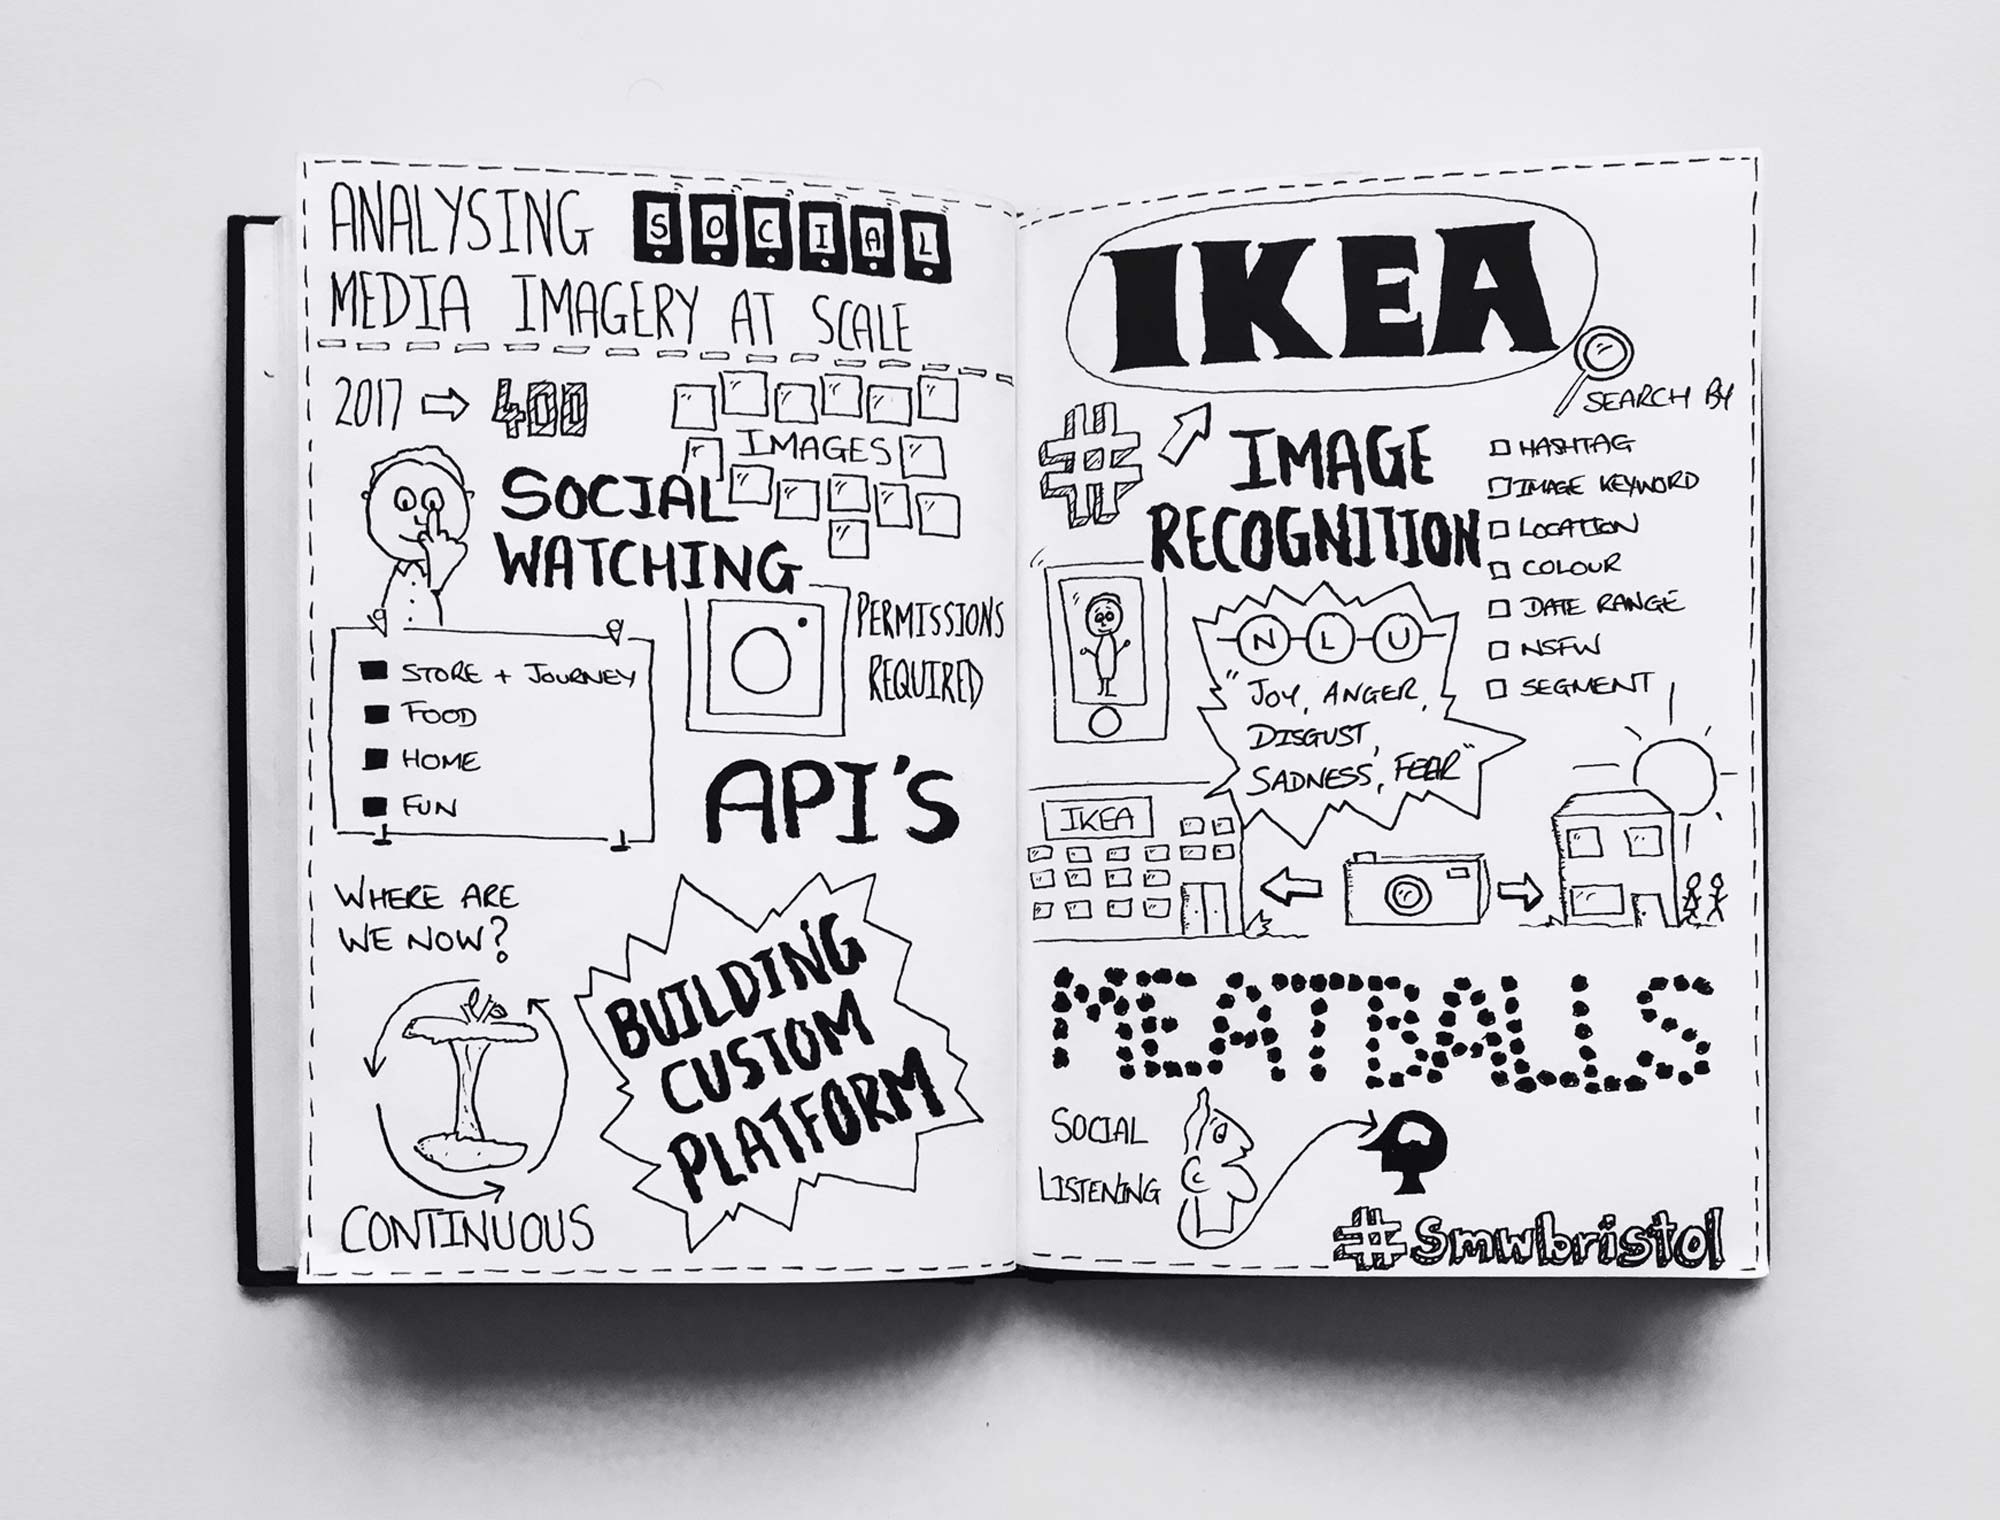 ANALYSING SOCIAL
MEDIA IMAGERY AT SCALE
2017 → 400
IMAGES
SOCIAL
WATCHING
STORE + JOURNEY
FOOD
HOME
FUN
PERMISSIONS
REQUIRED
API'S
WHERE ARE
WE NOW?
CONTINUOUS
BUILDING
CUSTOM
PLATFORM
IKEA
SEARCH BY
HASHTAG
IMAGE KEYWORD
LOCATION
COLOUR
DATE RANGE
NSFW
SEGMENT
#
IMAGE
RECOGNITION
NLU
"JOY, ANGER,
DISGUST,
SADNESS, FEAR"
IKEA
MEATBALLS
SOCIAL
LISTENING
#Smwbristol